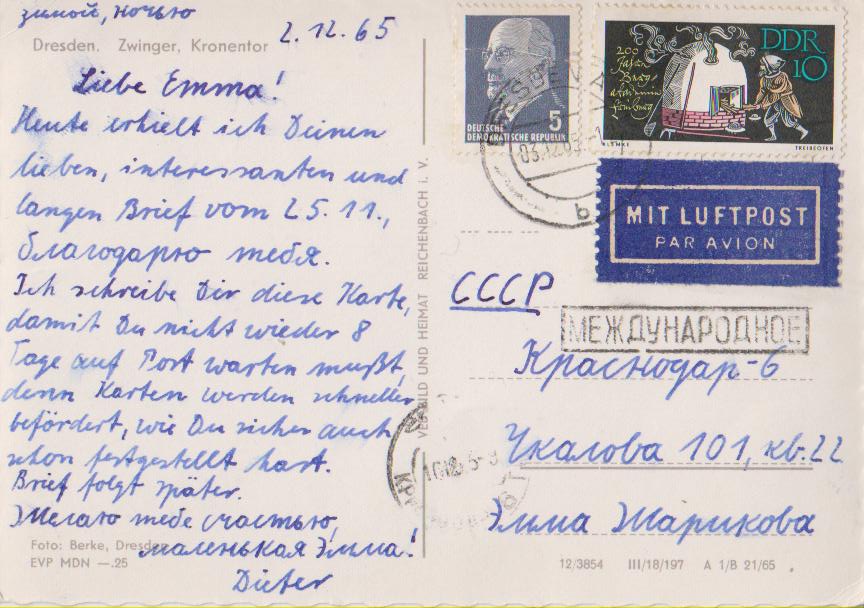 зимой, ночью
2.12.65
Dresden, Zwinger, Kronentor
Liebe Emma!
Heute erhielt ich Deinen
lieben, interessanten und
langen Brief vom 25.11.,
благодарю тебя.
Ich schreibe Dir diese Karte,
damit Du nicht wieder 8
Tage auf Post warten mußt,
denn Karten werden schneller
befördert, wie Du sicher auch
schon festgestellt hast.
Brief folgt später.
Желаю тебе счастью,
маленькая Эмма!
Dieter
Foto: Berke, Dresden
EVP MDN —.25
VEB BILD UND HEIMAT REICHENBACH i. V.
5
DEUTSCHE
DEMOKRATISCHE REPUBLIK
DDR
10
200
Jahre
Berg-
akademie
Freiberg
TREIBEOFEN
DRESDEN
b
MIT LUFTPOST
PAR AVION
СССР
МЕЖДУНАРОДНОЕ
Краснодар-6
Чкалова 101, кв. 22
Эмма Жарикова
12/3854 III/18/197 A 1/B 21/65